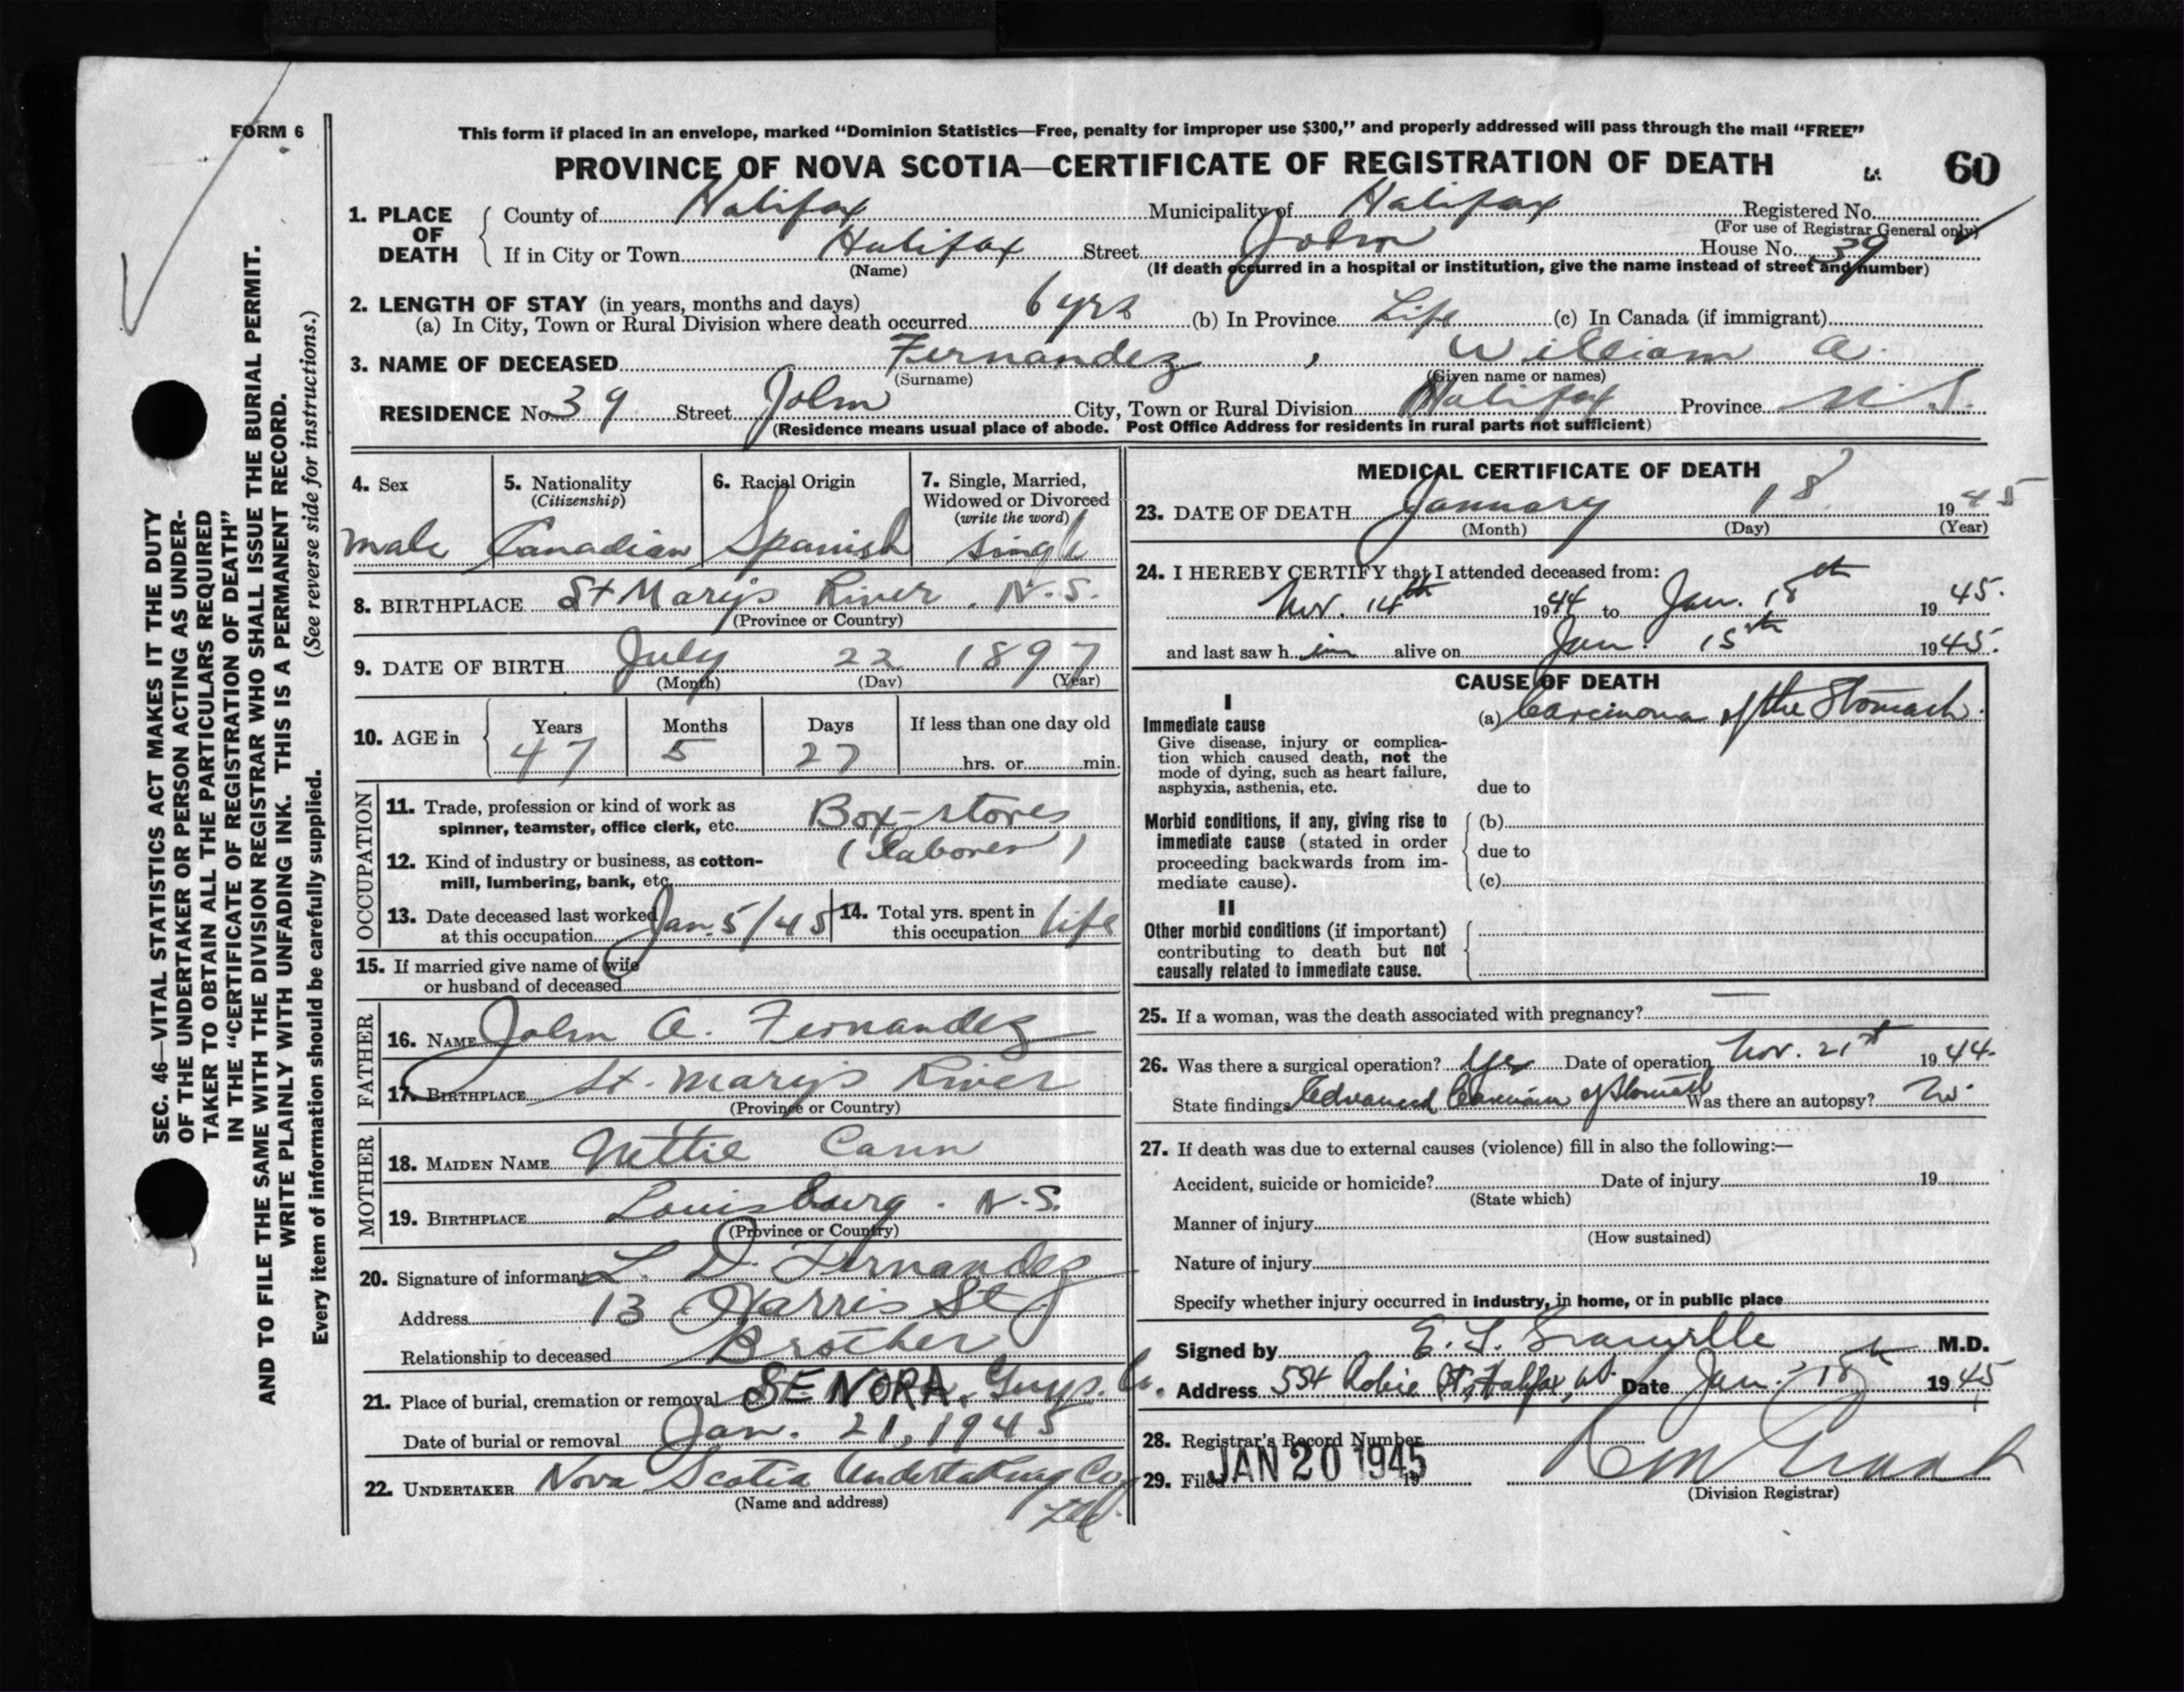 FORM 6
This form if placed in an envelope, marked “Dominion Statistics—Free, penalty for improper use $300,” and properly addressed will pass through the mail “FREE”
PROVINCE OF NOVA SCOTIA—CERTIFICATE OF REGISTRATION OF DEATH 60
1. PLACE OF DEATH County of Halifax Municipality of Halifax Registered No.
(For use of Registrar General only)
If in City or Town Halifax Street John House No. 39
(Name) (If death occurred in a hospital or institution, give the name instead of street and number)
2. LENGTH OF STAY (in years, months and days)
(a) In City, Town or Rural Division where death occurred 6 yrs (b) In Province Life (c) In Canada (if immigrant)
3. NAME OF DECEASED Fernandez, William A.
(Surname) (Given name or names)
RESIDENCE No 39 Street John City, Town or Rural Division Halifax Province N.S.
(Residence means usual place of abode. Post Office Address for residents in rural parts not sufficient)
4. Sex 5. Nationality 6. Racial Origin 7. Single, Married,
(Citizenship) Widowed or Divorced
(write the word)
male Canadian Spanish single
8. BIRTHPLACE St Marys River. N.S.
(Province or Country)
9. DATE OF BIRTH July 22 1897
(Month) (Day) (Year)
10. AGE in Years Months Days If less than one day old
47 5 27 hrs. or min.
OCCUPATION
11. Trade, profession or kind of work as
spinner, teamster, office clerk, etc. Box-stores
(Laborer)
12. Kind of industry or business, as cotton-
mill, lumbering, bank, etc.
13. Date deceased last worked
at this occupation Jan. 5/45
14. Total yrs. spent in
this occupation life
15. If married give name of wife
or husband of deceased
FATHER
16. NAME John A. Fernandez
17. BIRTHPLACE St. Marys River
(Province or Country)
MOTHER
18. MAIDEN NAME Nettie Cann
19. BIRTHPLACE Louisburg. N.S.
(Province or Country)
20. Signature of informant L. D. Fernandez
Address 13 Harris St.
Relationship to deceased Brother
21. Place of burial, cremation or removal SENORA, Guys. Co.
Date of burial or removal Jan. 21, 1945
22. UNDERTAKER Nova Scotia Undertaking Co.
(Name and address)
Ltd.
MEDICAL CERTIFICATE OF DEATH
23. DATE OF DEATH January 18 1945
(Month) (Day) (Year)
24. I HEREBY CERTIFY that I attended deceased from:
Nov. 14th 1944 to Jan. 18th 1945.
and last saw him alive on Jan. 15th 1945.
CAUSE OF DEATH
I
Immediate cause (a) Carcinoma of the Stomach.
Give disease, injury or complica-
tion which caused death, not the
mode of dying, such as heart failure,
asphyxia, asthenia, etc. due to
Morbid conditions, if any, giving rise to (b)
immediate cause (stated in order
proceeding backwards from im- due to
mediate cause). (c)
II
Other morbid conditions (if important)
contributing to death but not
causally related to immediate cause.
25. If a woman, was the death associated with pregnancy? —
26. Was there a surgical operation? Yes Date of operation Nov. 21st 1944.
State findings Advanced Carcinoma of Stomach Was there an autopsy? No
27. If death was due to external causes (violence) fill in also the following:—
Accident, suicide or homicide? Date of injury 19
(State which)
Manner of injury
(How sustained)
Nature of injury
Specify whether injury occurred in industry, in home, or in public place
Signed by E. F. Granville M.D.
Address 554 Robie St, Halifax, Date Jan. 18th 1945
28. Registrar's Record Number
29. Filed JAN 20 1945 19
(Division Registrar)
SEC. 46—VITAL STATISTICS ACT MAKES IT THE DUTY
OF THE UNDERTAKER OR PERSON ACTING AS UNDER-
TAKER TO OBTAIN ALL THE PARTICULARS REQUIRED
IN THE “CERTIFICATE OF REGISTRATION OF DEATH”
AND TO FILE THE SAME WITH THE DIVISION REGISTRAR WHO SHALL ISSUE THE BURIAL PERMIT.
WRITE PLAINLY WITH UNFADING INK. THIS IS A PERMANENT RECORD.
Every item of information should be carefully supplied. (See reverse side for instructions.)